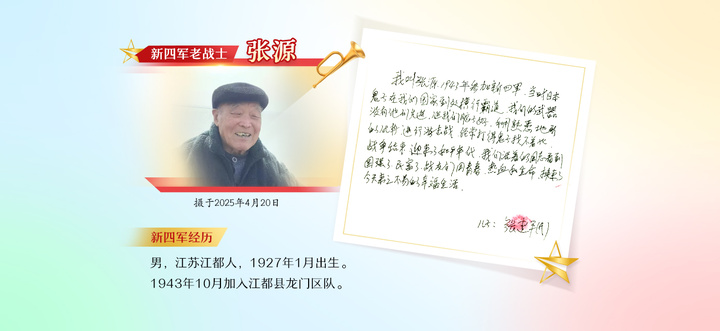 新四军老战士 张源
摄于2025年4月20日
新四军经历
男，江苏江都人，1927年1月出生。
1943年10月加入江都县龙门区队。
我叫张源1943年参加新四军，当时日本
鬼子在我们国家到处横行霸道，我们的武器
没有他们先进，但我们 利用熟悉地形
的优势进行游击战，经常打得鬼子找不着北
战争结束迎来了和平年代，我们活着的同志看到
国强了民富了，战友们用青春、热血和生命，换来了
今天来之不易的幸福生活。